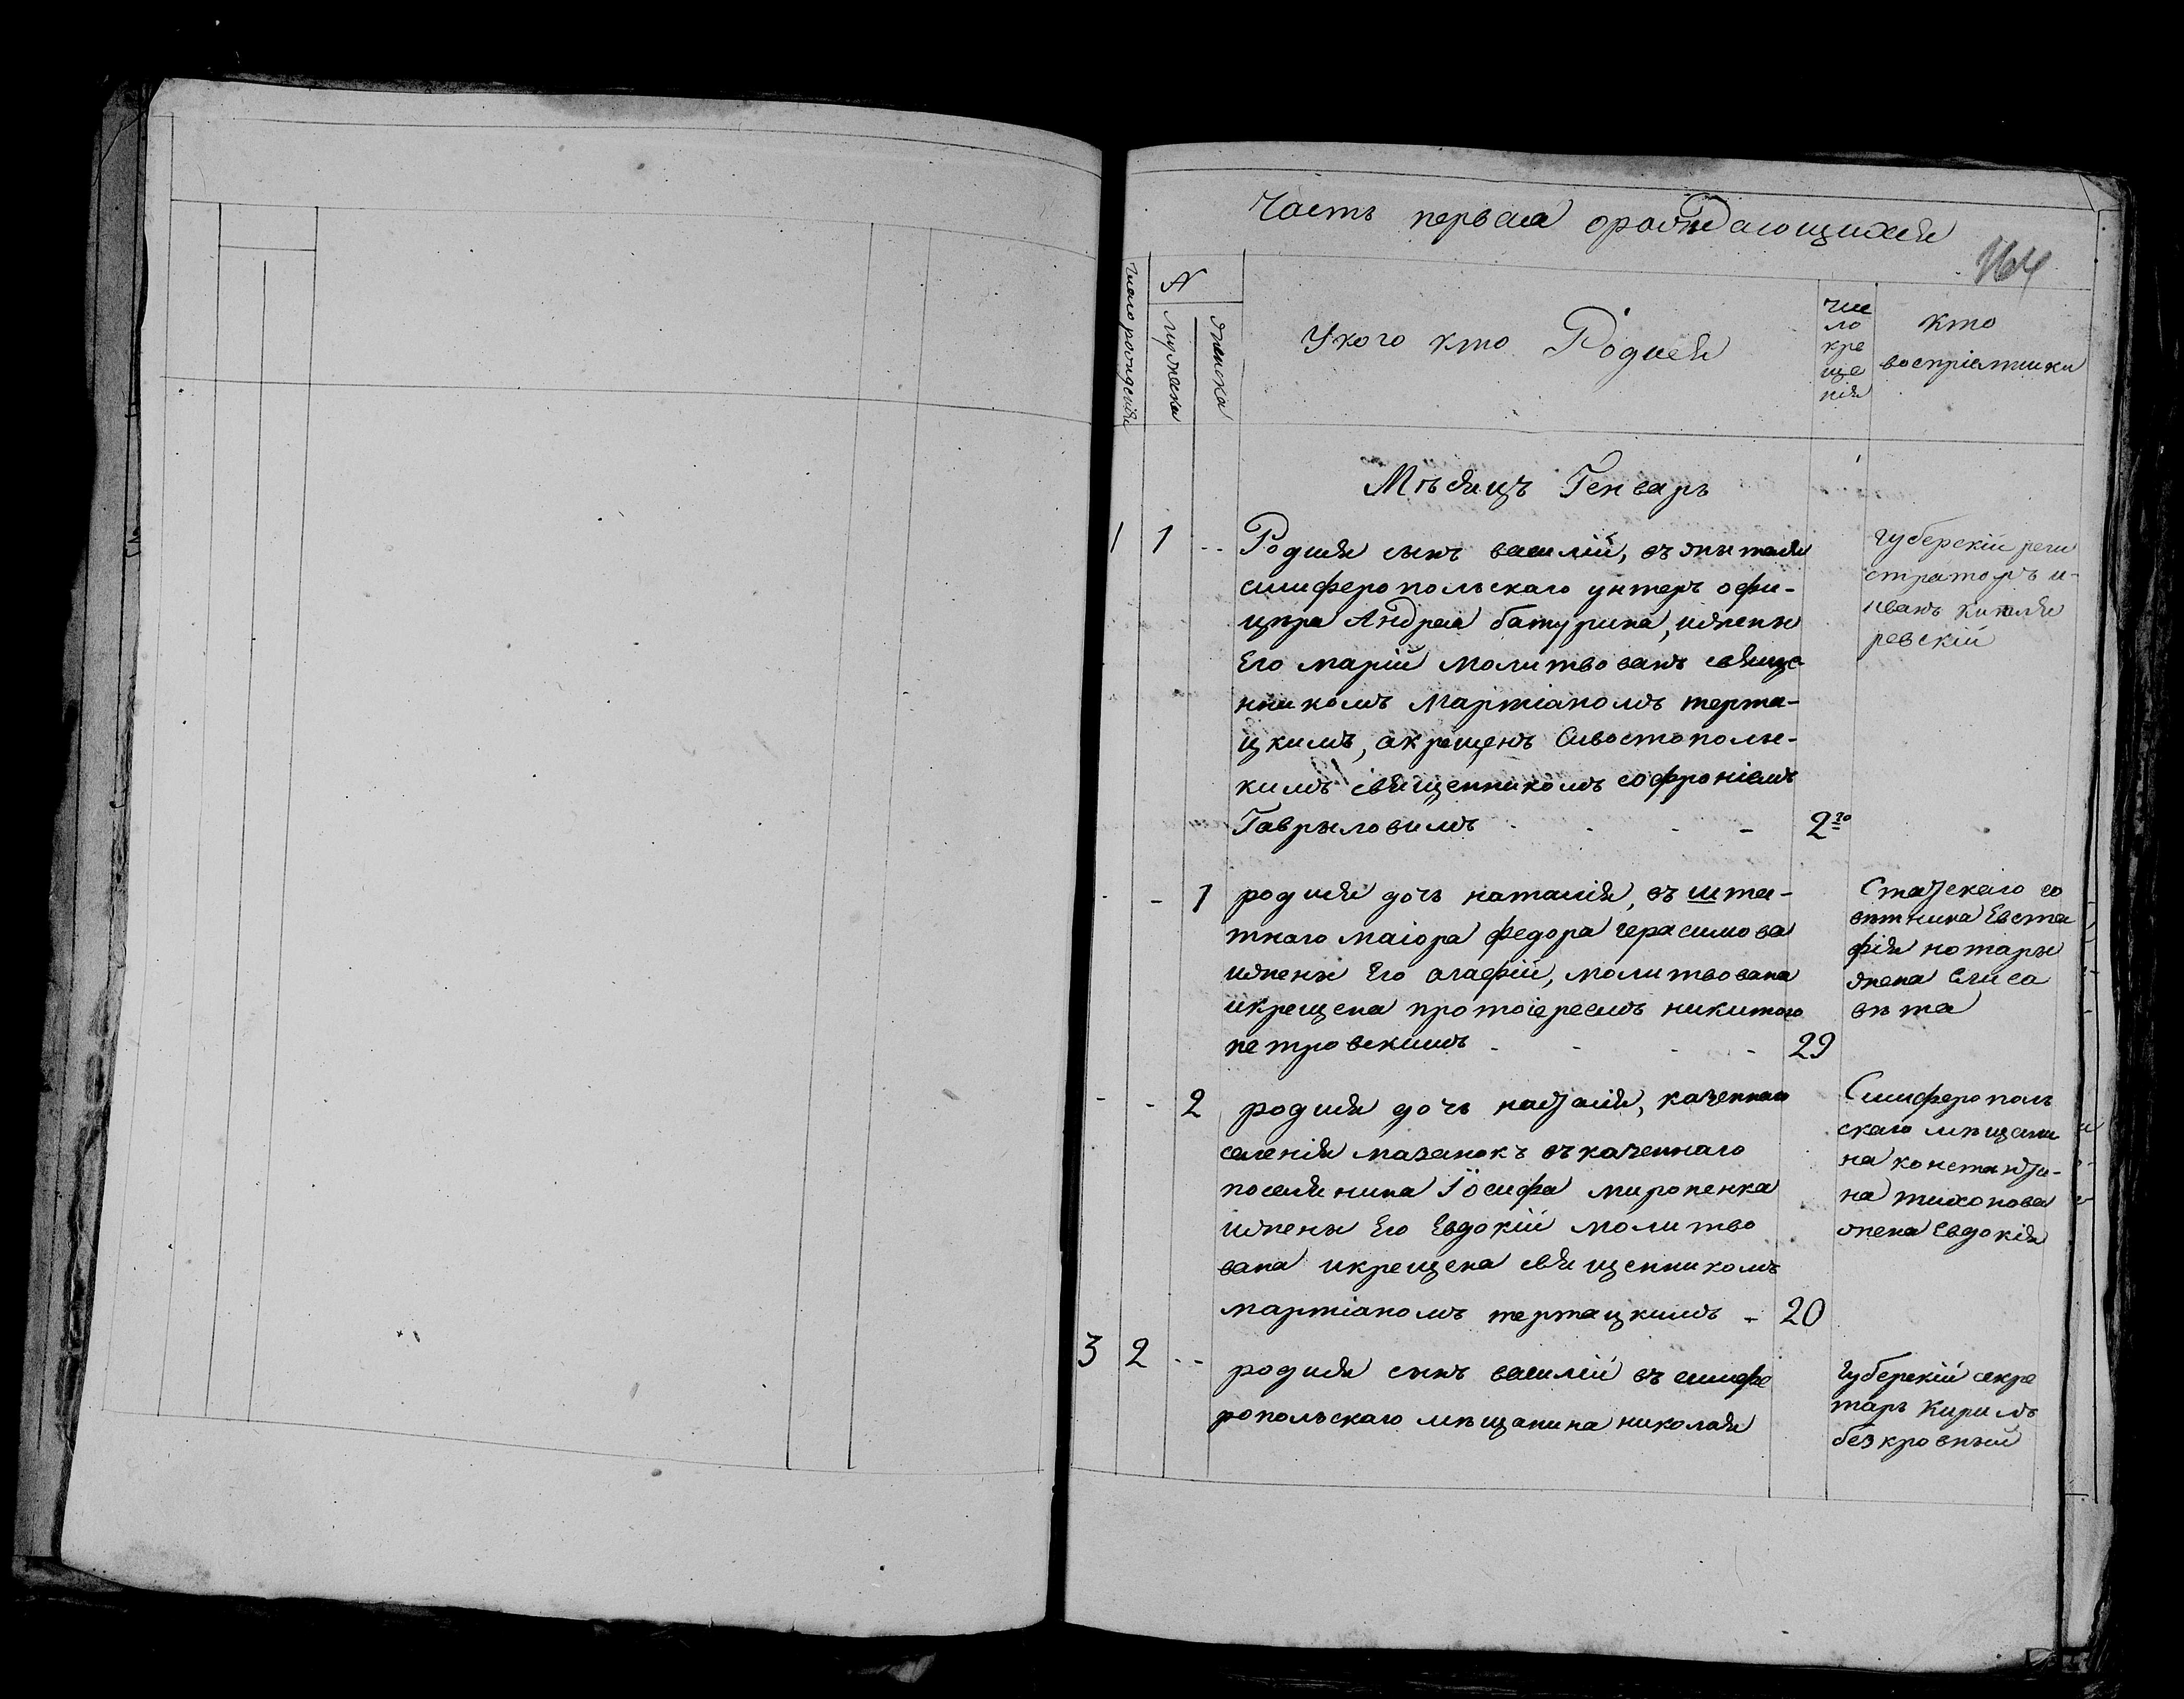 Часть первая ораждающихся
164
Число рождения
N
мужеска
женска
Укого кто Родися
Чис
ло
кре
ще
нія
Кто
воспріятники
Мѣсяцъ Генварь
1 1 -- Родися сынъ василій, въ жителя
симферопольскаго унтеръ офи-
цера Андрея батурина, ижены
Его маріи молитвованъ свяще
нникомъ Мартіаномъ терта-
цкимъ, акрещенъ Сивостополь-
кимъ священникомъ софроніемъ
Гаврыловимъ - - - 2го
Губерскій реги
страторъ и-
иванъ
ревскій
- - 1 родися дочь наталія, въ шта-
тнаго маіора федора герасимова
ижены Его агафіи, молитвована
икрещена протоіереемъ никитою
петровскимъ - - - - 29
Статскаго со
вѣтника Евста
фія нотары
жена Елиса
вѣта
- - 2 родися дочь наталія, казеннаго
селенія мазанокъ въ казеннаго
поселянина Іосифа мироненка
ижены Его Евдокіи молитво
вана икрещена священникомъ
мартіаномъ тертацкимъ - 20
Симферополь
скаго мѣщани
на константи-
на тихонова
жена Евдокія
3 2 -- родися сынъ василій въ симфе
ропольскаго мѣщанина николая
Губерскій секре
таръ Кирилъ
безкровный